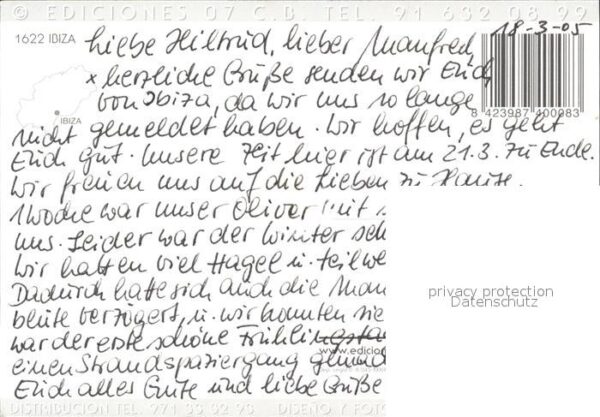 © EDICIONES 07 C.B. TEL. 91 632 08 99
18-3-05
1622 IBIZA
Liebe Hiltrud, lieber Manfred,
herzliche Grüße senden wir Euch
von Ibiza, da wir uns so lange
IBIZA
8 423987 400083
nicht gemeldet haben. Wir hoffen, es geht
Euch gut. Unsere Zeit hier ist am 21.3. zu Ende.
Wir freuen uns auf die Lieben zu Hause.
1 Woche war unser Oliver mit
uns. Leider war der Winter
Wir hatten viel Hagel u.
privacy protection
Datenschutz
Dadurch hatte sich auch die
blüte verzögert, u. wir konnten sie
war der erste schöne
www.edicio
einen Strandspaziergang
Euch alles Gute und liebe Grüße
DISTRIBUCION TEL. 971 33 32 93 DISEÑO Y FOTO